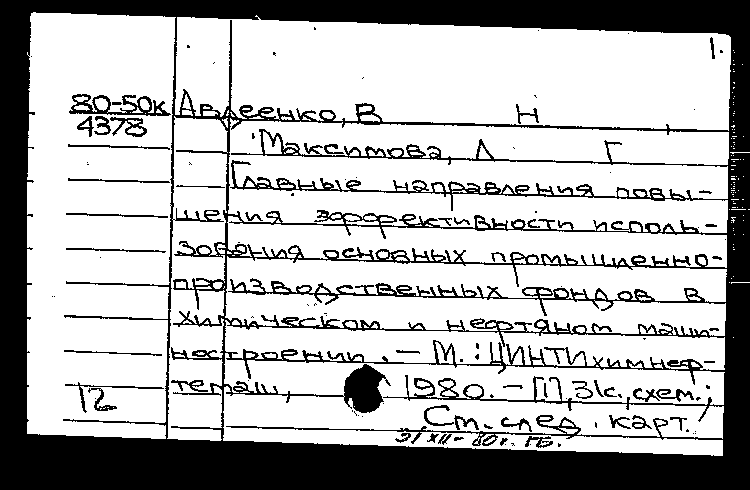 1.
80-50к Авдеенко, В Н
4378
Максимова, Л Г
Главные направления повы-
шения эффективности исполь-
зования основных промышленно-
производственных фондов в
химическом и нефтяном маши-
ностроении. — М.: ЦИНТИхимнеф-
темаш, 1980. — [1], 31с., схем.;
12
Ст. след. карт.
31/XII-80г. ГБ.